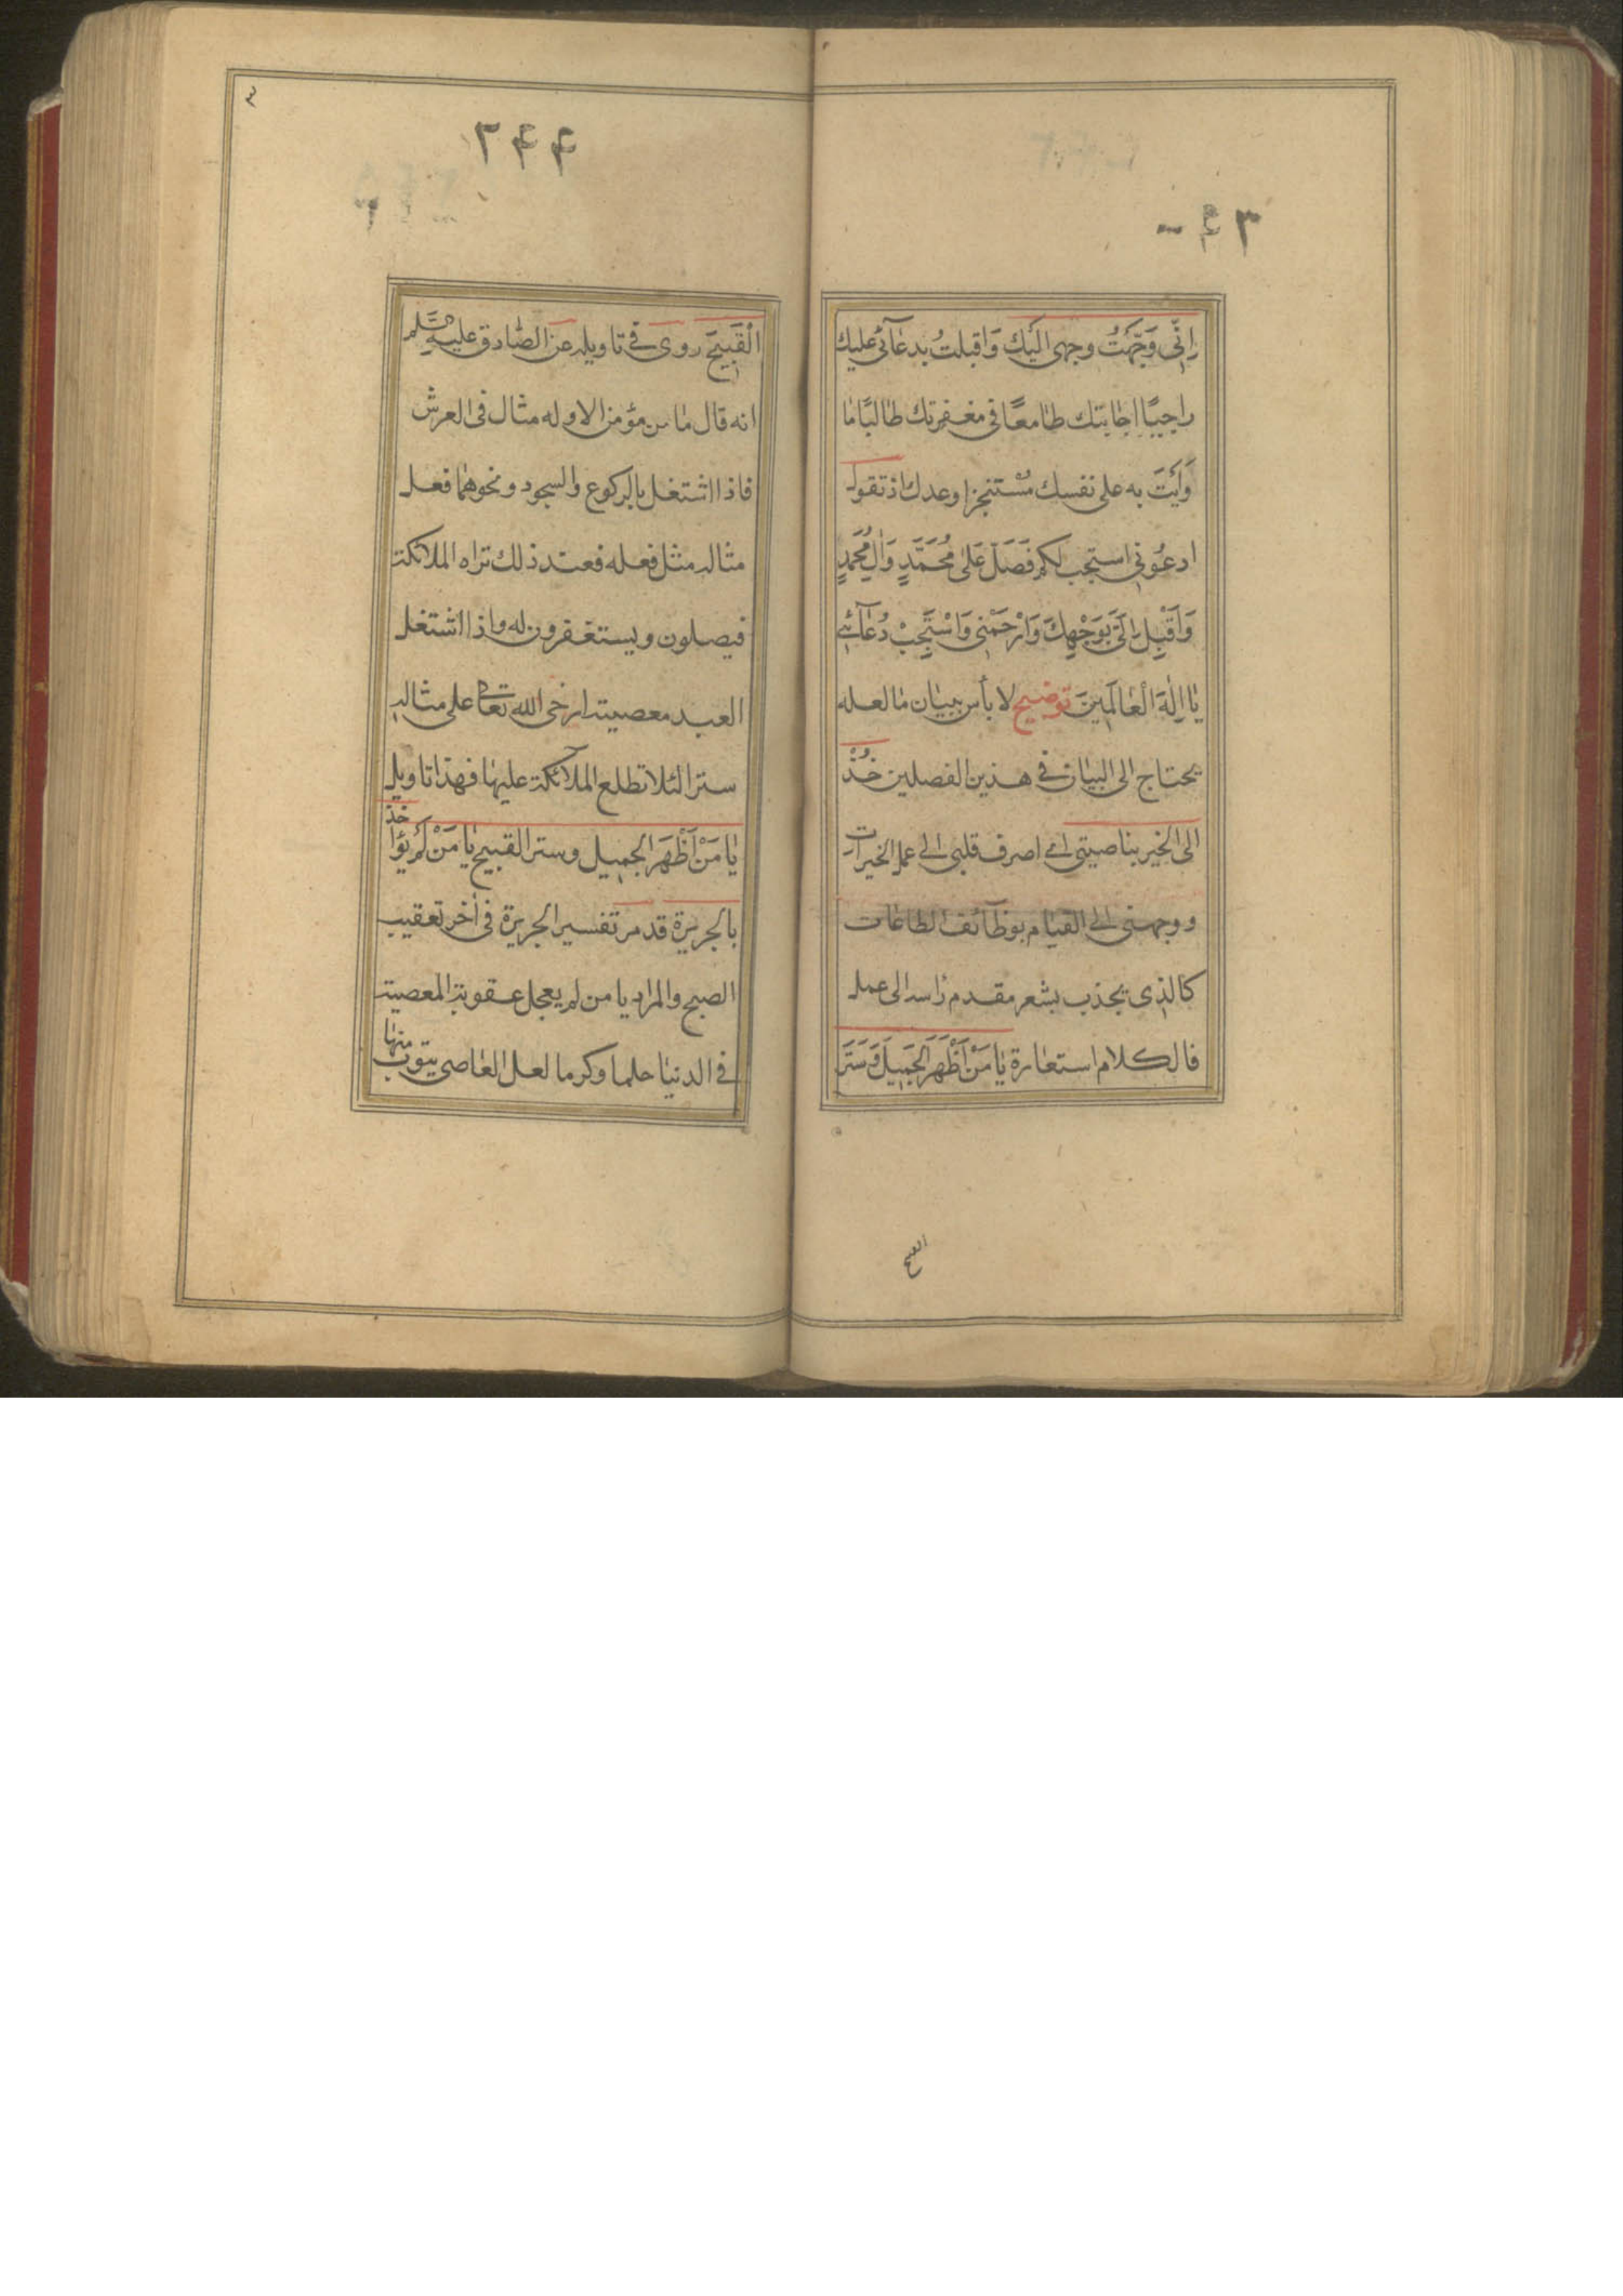 اِنّی وَجَّهتُ وجهی الیَک وَاقبلتُ بدعٰآئی علیك
راجیًا اجٰابتك طٰامعًا فی مغفرتك طٰالبًا مٰا
وَاَیتَ به علی نفسك مُستنجزا وعدك اذ تقول
ادعُونی استجب لکم فَصَلّ عَلیٰ مُحَمَّدٍ وَاٰلِ مُحَمَّدٍ
وَاَقْبِل اِلَیَّ بِوَجْهِكَ وَارْحَمْنی وَاسْتَجِبْ دُعٰآئی
یٰا اِلٰهَ الْعٰالَمینَ توضیح لا بأس ببیٰان مٰا لعله
یحتاج الی البیٰان فی هذین الفصلین خُذْ
الی الخیر بناصیتی ای اصرف قلبی الی عمل الخیرات
ووجهنی الی القیٰام بوظٰآئف الطاعٰات
کالذی یجذب بشعر مقدم رٰاسه الی عمل
فالکلام استعٰارة یٰا مَنْ اَظْهَرَ الجَمیلَ وَسَتَرَ
القبیح
۲۴۴
الْقَبیحَ روی فی تاویله عن الصّادق علیه السَّلم
انه قال مٰا من مؤمن الا وله مثال فی العرش
فاذا اشتغل بالرکوع والسجود ونحوهمٰا فعل
مثاله مثل فعله فعند ذلك تراه الملائکة
فیصلون ویستغفرون له واذا اشتغل
العبد معصیة ارخی الله تعٰالی علی مثاله
سترا لئلا تطلع الملآئکة علیهٰا فهذا تاویل
یٰا مَنْ اَظْهَرَ الجمیل وستر القبیح یٰا مَنْ لَمْ یُؤاخذ
بالجریرة قد مر تفسیر الجریرة فی آخر تعقیب
الصبح والمراد یا من لم یعجل عقوبة المعصیة
فی الدنیٰا حلما وکرما لعل العٰاصی یتوب منهٰا